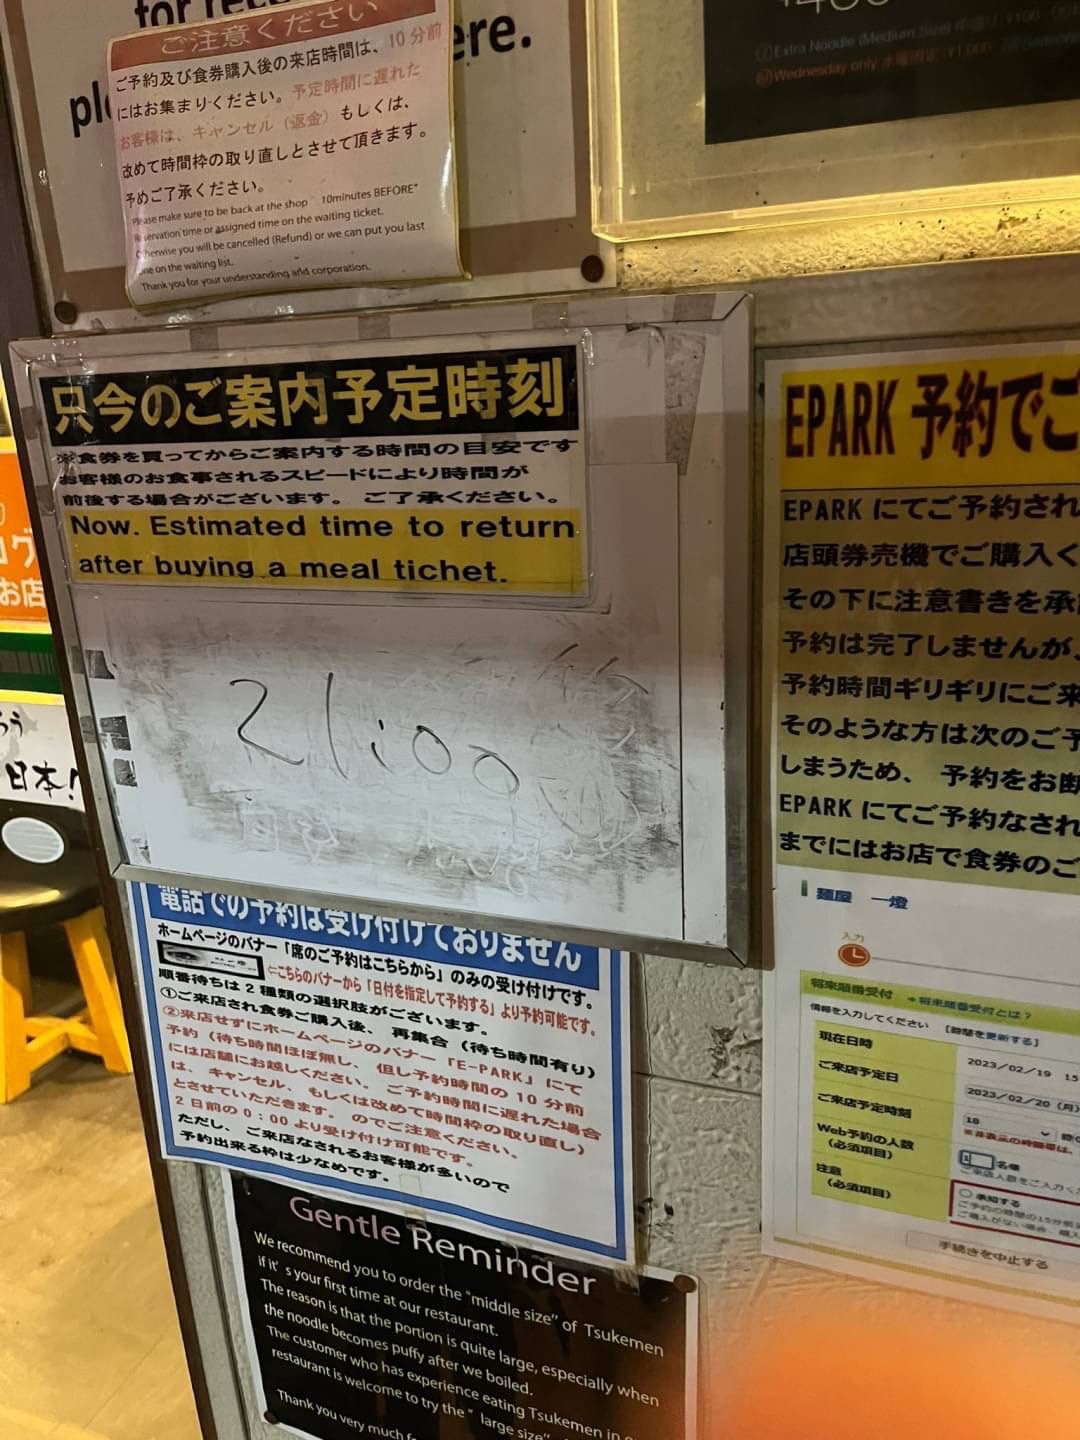 for rec
ple
ere.
ご注意ください
ご予約及び食券購入後の来店時間は、10分前
にはお集まりください。予定時間に遅れた
お客様は、キャンセル（返金）もしくは、
改めて時間枠の取り直しとさせて頂きます。
予めご了承ください。
Please make sure to be back at the shop 10minutes BEFORE"
Reservation time or assigned time on the waiting ticket.
Otherwise you will be cancelled (Refund) or we can put you last
one on the waiting list.
Thank you for your understanding and corporation.
Extra Noodle (Medium Size) 中盛り ¥100
Wednesday only 水曜限定 ¥1,000
只今のご案内予定時刻
※食券を買ってからご案内する時間の目安です
お客様のお食事されるスピードにより時間が
前後する場合がございます。 ご了承ください。
Now. Estimated time to return
after buying a meal tichet.
21:00
EPARK 予約でご
EPARK にてご予約され
店頭券売機でご購入く
その下に注意書きを承
予約は完了しませんが、
予約時間ギリギリにご来
そのような方は次のご予
しまうため、 予約をお断
EPARK にてご予約なされ
までにはお店で食券のご
麺屋 一燈
入力
将来順番受付 →将来順番受付とは？
情報を入力してください [時間を更新する]
現在日時 2023/02/19 15
ご来店予定日 2023/02/20 (月)
ご来店予定時刻 18
Web予約の人数
(必須項目) 1 名様
ご来店人数をご入力く
注意
(必須項目) 承知する
手続きを中止する
お店
日本！
電話での予約は受け付けておりません
ホームページのバナー「席のご予約はこちらから」のみの受け付けです。
⇐こちらのバナーから「日付を指定して予約する」より予約可能です。
順番待ちは2種類の選択肢がございます。
①ご来店され食券ご購入後、 再集合（待ち時間有り）
②来店せずにホームページのバナー「E-PARK」にて
予約（待ち時間ほぼ無し、但し予約時間の10分前
には店舗にお越しください。ご予約時間に遅れた場合
は、キャンセル、もしくは改めて時間枠の取り直し）
とさせていただきます。のでご注意ください。
2日前の0：00より受け付け可能です。
ただし、ご来店なされるお客様が多いので
予約出来る枠は少なめです。
Gentle Reminder
We recommend you to order the "middle size" of Tsukemen
if it's your first time at our restaurant.
The reason is that the portion is quite large, especially when
the noodle becomes puffy after we boiled.
The customer who has experience eating Tsukemen in o
restaurant is welcome to try the " large size"
Thank you very much f